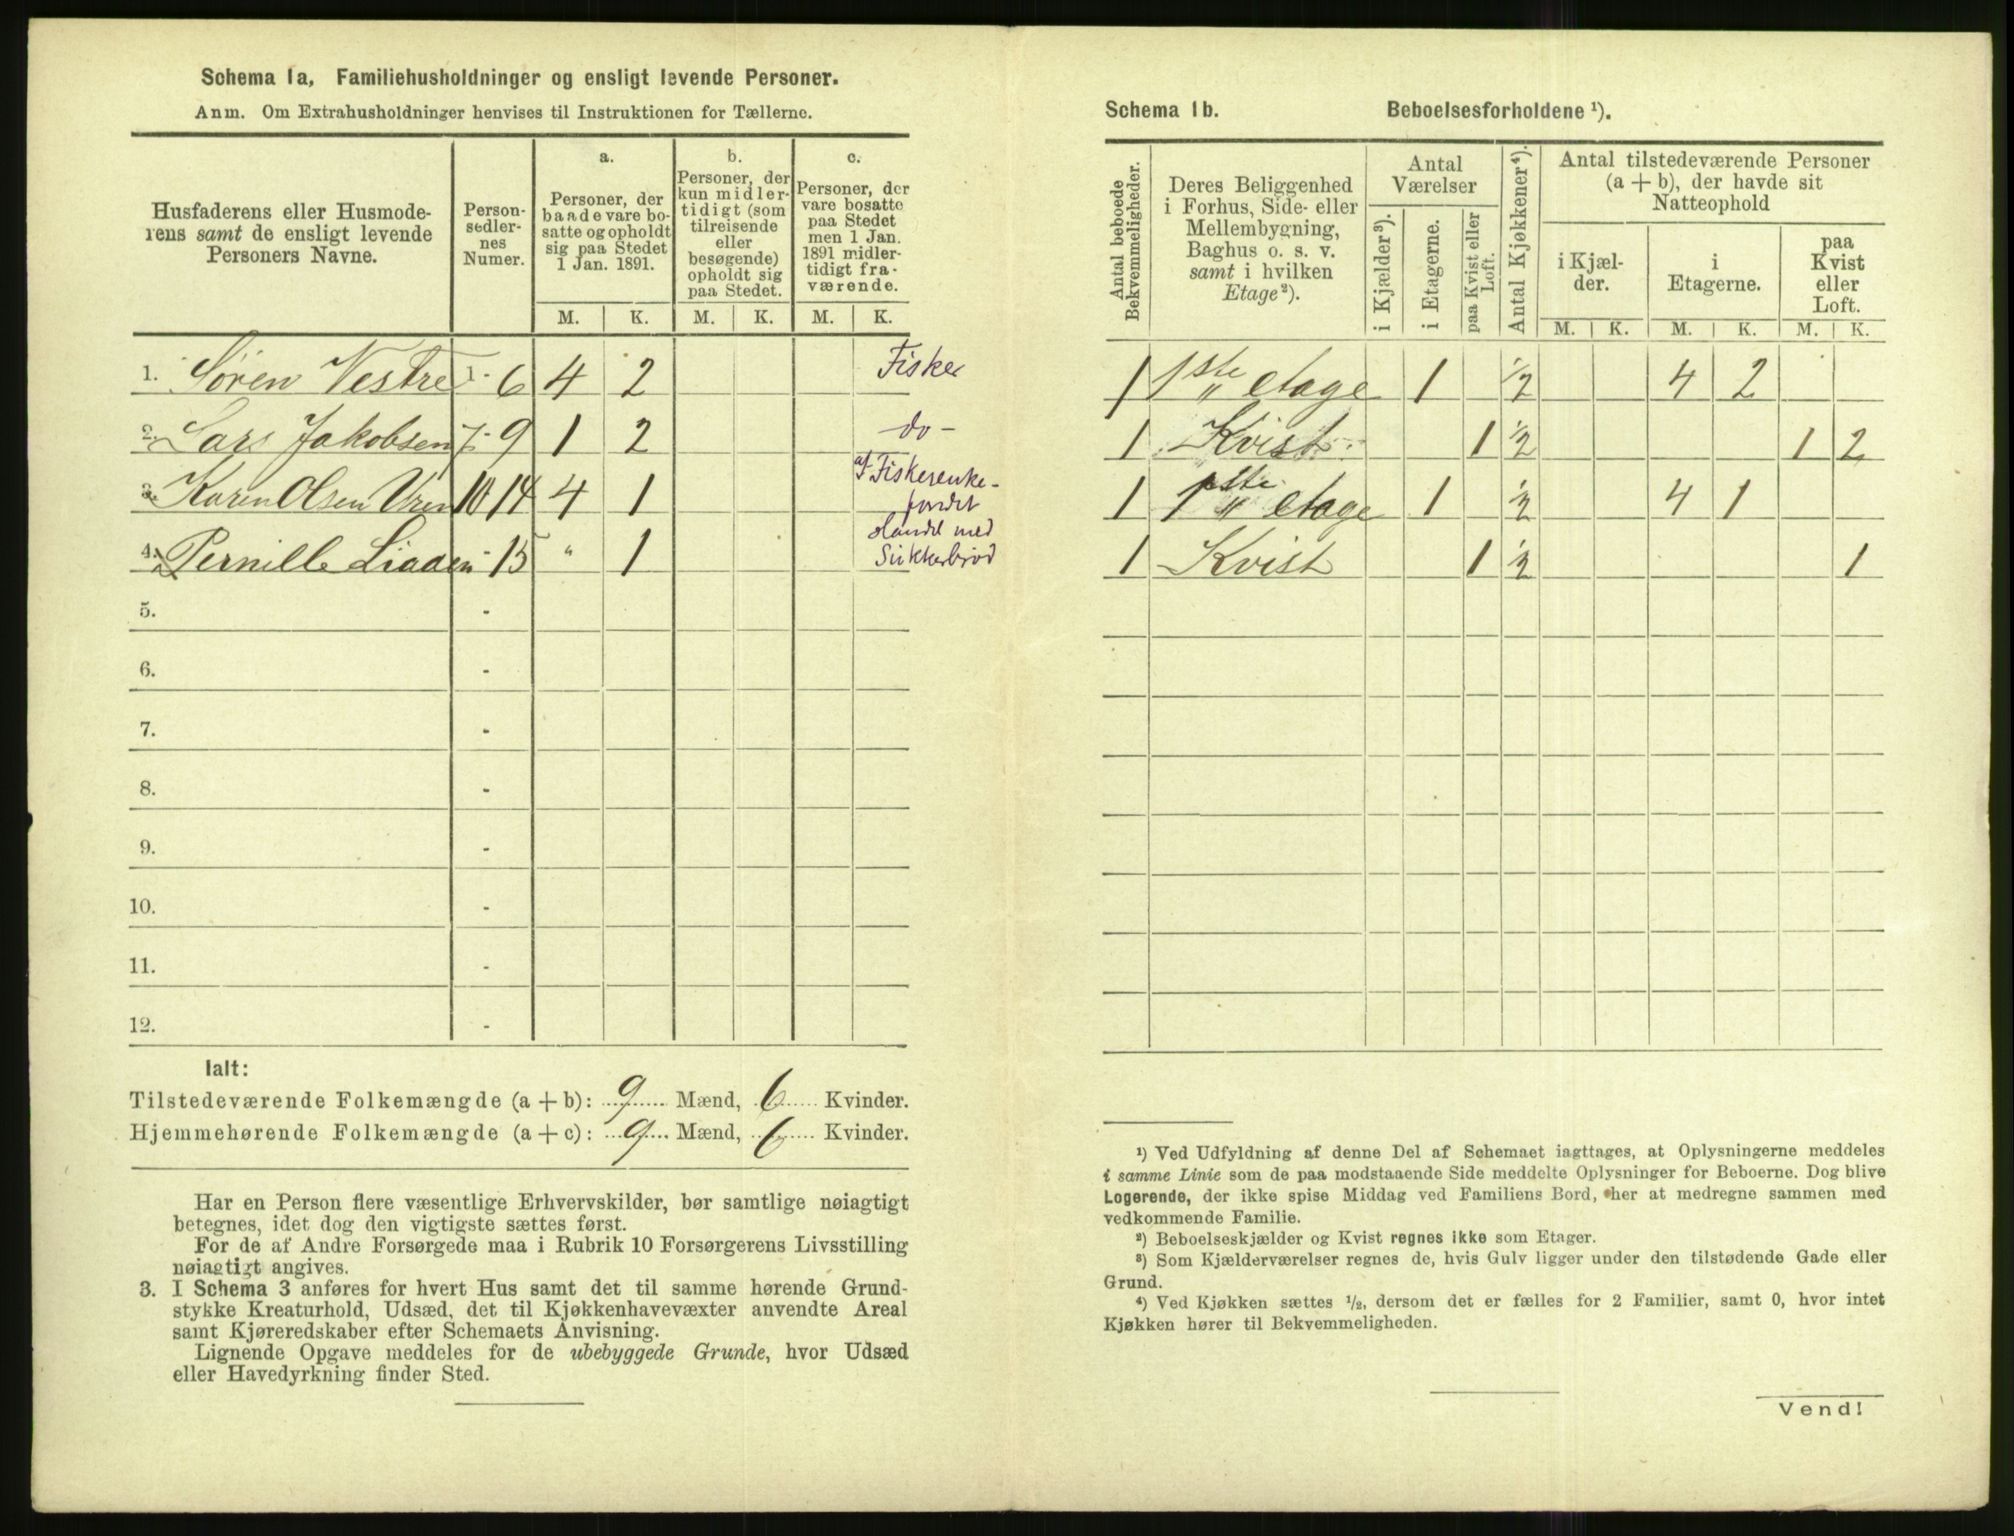 Schema 1a, Familiehusholdninger og ensligt levende Personer.
Anm. Om Extrahusholdninger henvises til Instruktionen for Tællerne.
Husfaderens eller Husmoderens samt de ensligt levende Personers Navne.
Personsedlernes Numer.
a.
Personer, der baade vare bosatte og opholdt sig paa Stedet 1 Jan. 1891.
b.
Personer, der kun midlertidigt (som tilreisende eller besøgende) opholdt sig paa Stedet.
c.
Personer, der vare bosatte paa Stedet men 1 Jan. 1891 midlertidigt fraværende.
M. K. M. K. M. K.
1. Søren Vestre 1 - 6 4 2 Fisker
2. Lars Jakobsen 7 - 9 1 2 do -
3. Karen Olsen Vren 10 14 4 1 af Fiskerenkefondet
4. Pernille Liaden - 15 " 1 Handel med Sukkerbrød
5. -
6. -
7. -
8. -
9. -
10. -
11. -
12. -
Ialt:
Tilstedeværende Folkemængde (a + b): 9 Mænd, 6 Kvinder.
Hjemmehørende Folkemængde (a + c): 9 Mænd, 6 Kvinder.
Har en Person flere væsentlige Erhvervskilder, bør samtlige nøiagtigt
betegnes, idet dog den vigtigste sættes først.
For de af Andre Forsørgede maa i Rubrik 10 Forsørgerens Livsstilling
nøiagtigt angives.
3. I Schema 3 anføres for hvert Hus samt det til samme hørende Grund-
stykke Kreaturhold, Udsæd, det til Kjøkkenhavevæxter anvendte Areal
samt Kjøreredskaber efter Schemaets Anvisning.
Lignende Opgave meddeles for de ubebyggede Grunde, hvor Udsæd
eller Havedyrkning finder Sted.
Schema 1b. Beboelsesforholdene ¹).
Antal beboede Bekvemmeligheder.
Deres Beliggenhed i Forhus, Side- eller Mellembygning, Baghus o. s. v. samt i hvilken Etage²).
Antal Værelser
i Kjælder³).
i Etagerne.
paa Kvist eller Loft.
Antal Kjøkkener⁴).
Antal tilstedeværende Personer (a + b), der havde sit Natteophold
i Kjælder.
i Etagerne.
paa Kvist eller Loft.
M. K. M. K. M. K.
1 1ste etage 1 1/2 4 2
1 Kvist 1 1/2 1 2
1 1ste etage 1 1/2 4 1
1 Kvist 1 1/2 1
¹) Ved Udfyldning af denne Del af Schemaet iagttages, at Oplysningerne meddeles
i samme Linie som de paa modstaaende Side meddelte Oplysninger for Beboerne. Dog blive
Logerende, der ikke spise Middag ved Familiens Bord, her at medregne sammen med
vedkommende Familie.
²) Beboelseskjælder og Kvist regnes ikke som Etager.
³) Som Kjælderværelser regnes de, hvis Gulv ligger under den tilstødende Gade eller
Grund.
⁴) Ved Kjøkken sættes ½, dersom det er fælles for 2 Familier, samt 0, hvor intet
Kjøkken hører til Bekvemmeligheden.
Vend!